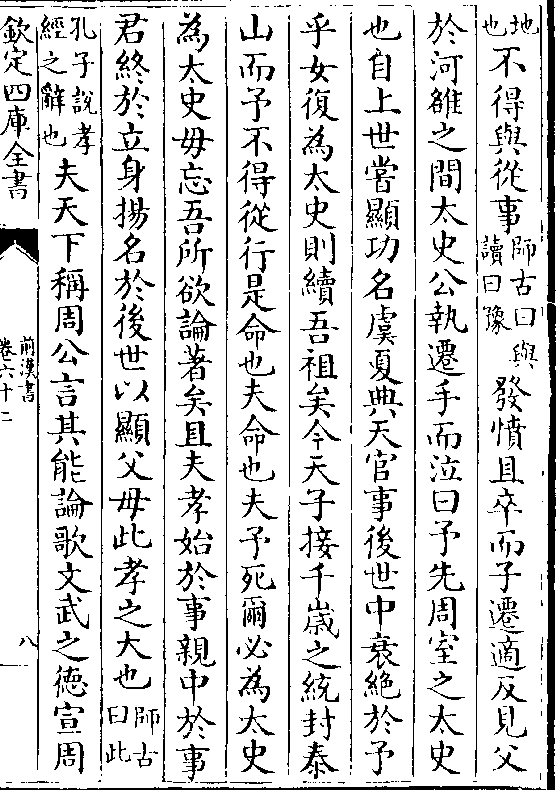 地也不得與從事師古曰與讀曰豫發憤且卒而子遷適反見父
於河雒之間太史公執遷手而泣曰予先周室之太史
也自上世嘗顯功名虞夏典天官事後世中衰絕於予
乎女復為太史則續吾祖矣今天子接千歲之統封泰
山而予不得從行是命也夫命也夫予死爾必為太史
為太史毋忘吾所欲論著矣且夫孝始於事親中於事
君終於立身揚名於後世以顯父毋此孝之大也師古曰此
孔子說孝經之辭也夫天下稱周公言其能論歌文武之德宣周
欽定四庫全書
前漢書
卷六十二
八